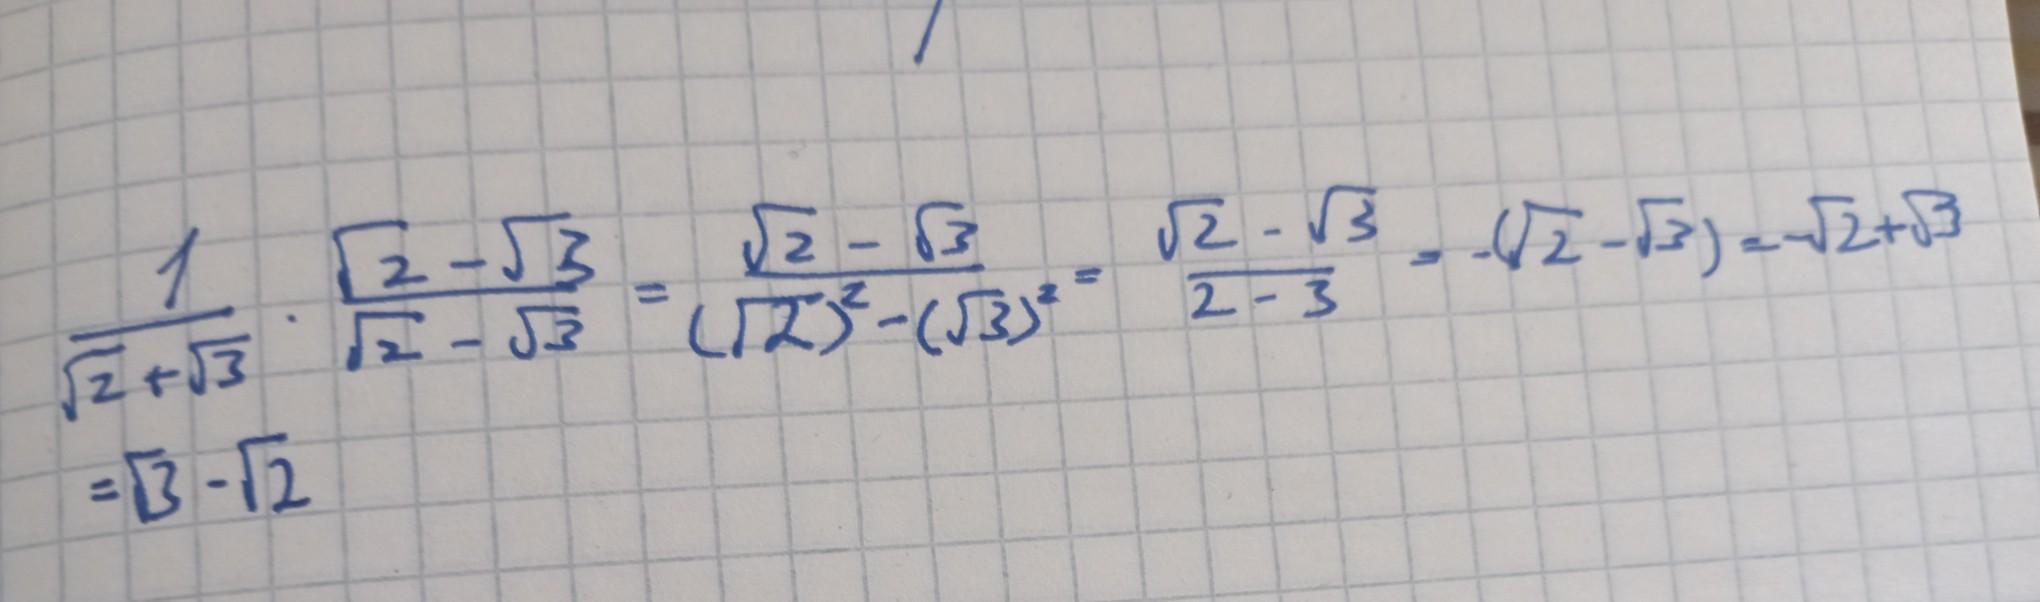 1/(√2+√3) · (√2-√3)/(√2-√3) = (√2-√3)/((√2)²-(√3)²) = (√2-√3)/(2-3) = -(√2-√3) = -√2+√3
= √3-√2